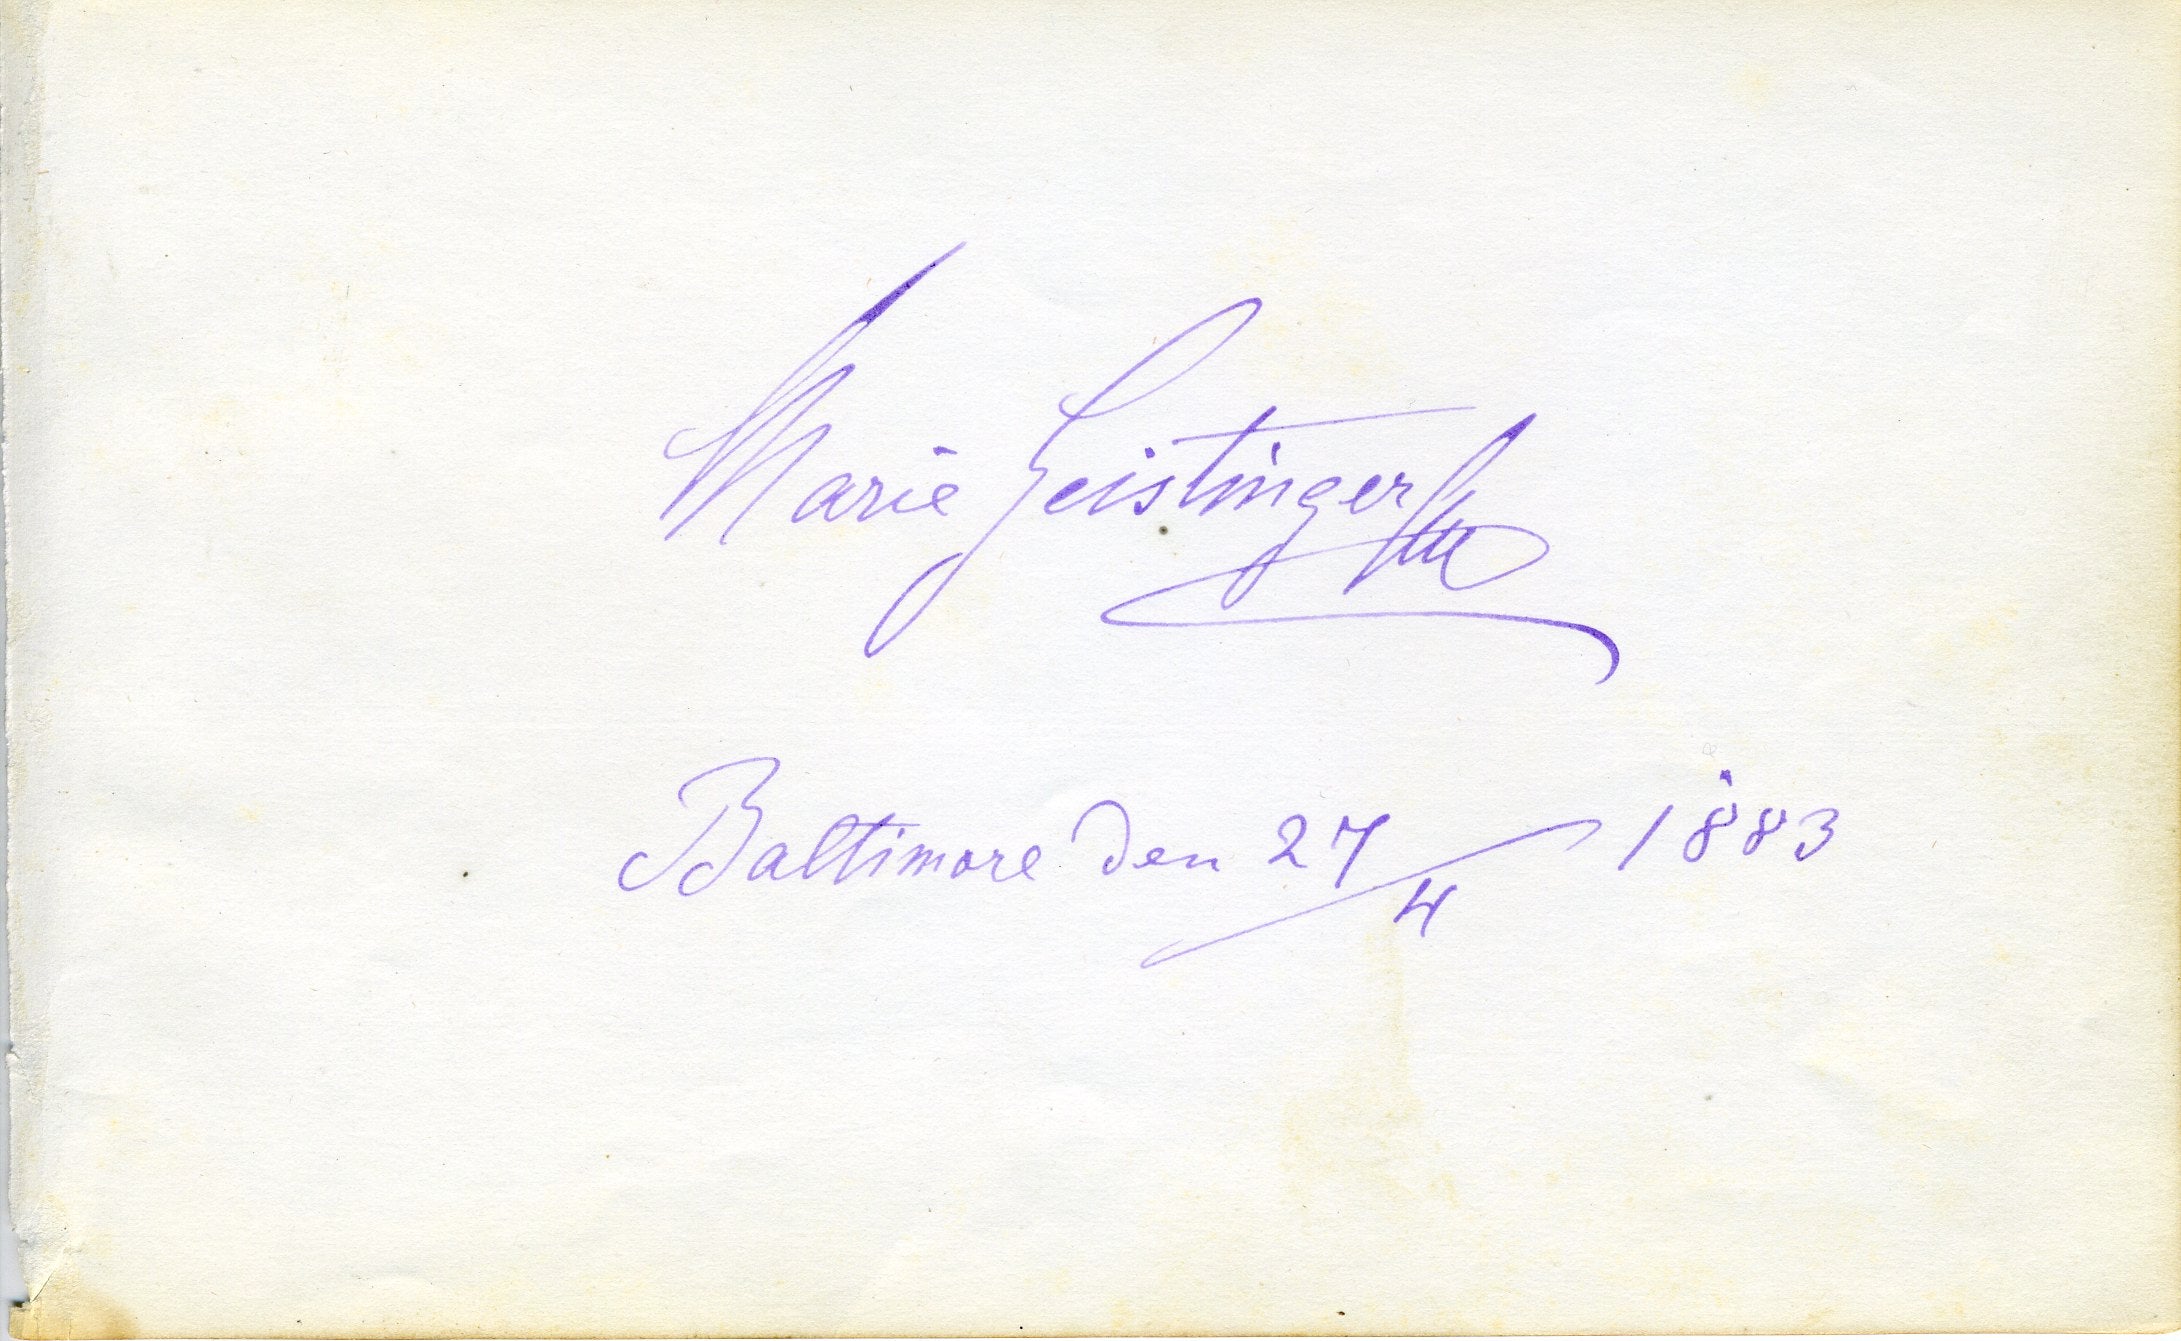 Marie Geistinger
Baltimore den 27/4 1883